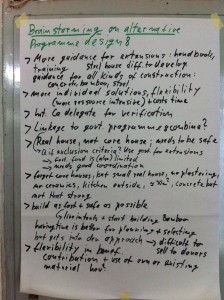 Brainstorming on alternative
Programme design:
> More guidance for extensions: handbook,
training steel house diff. to develop
guidance for all kinds of construction:
concrete, bamboo, steel
> more individual solutions, flexibility
(more resource intensive) + costs time
> but Co delegate for verification
> Linkage to govt programme + combine?
> (Real house, not core house, needs to be safe
exclusion criteria? Use govt for extensions
→ govt fund is (also) limited
→ needs good coordination
> forget core houses, but small real house, no plastering,
no ceramics, kitchen outside, concrete but
not that strong
> build as fast + safe as possible
livelihoods + start building bamboo
having time is better for planning + selecting
but gets into dev. approach → difficult to
> flexibility in benef. sell to donors
contribution + use of own or existing
material